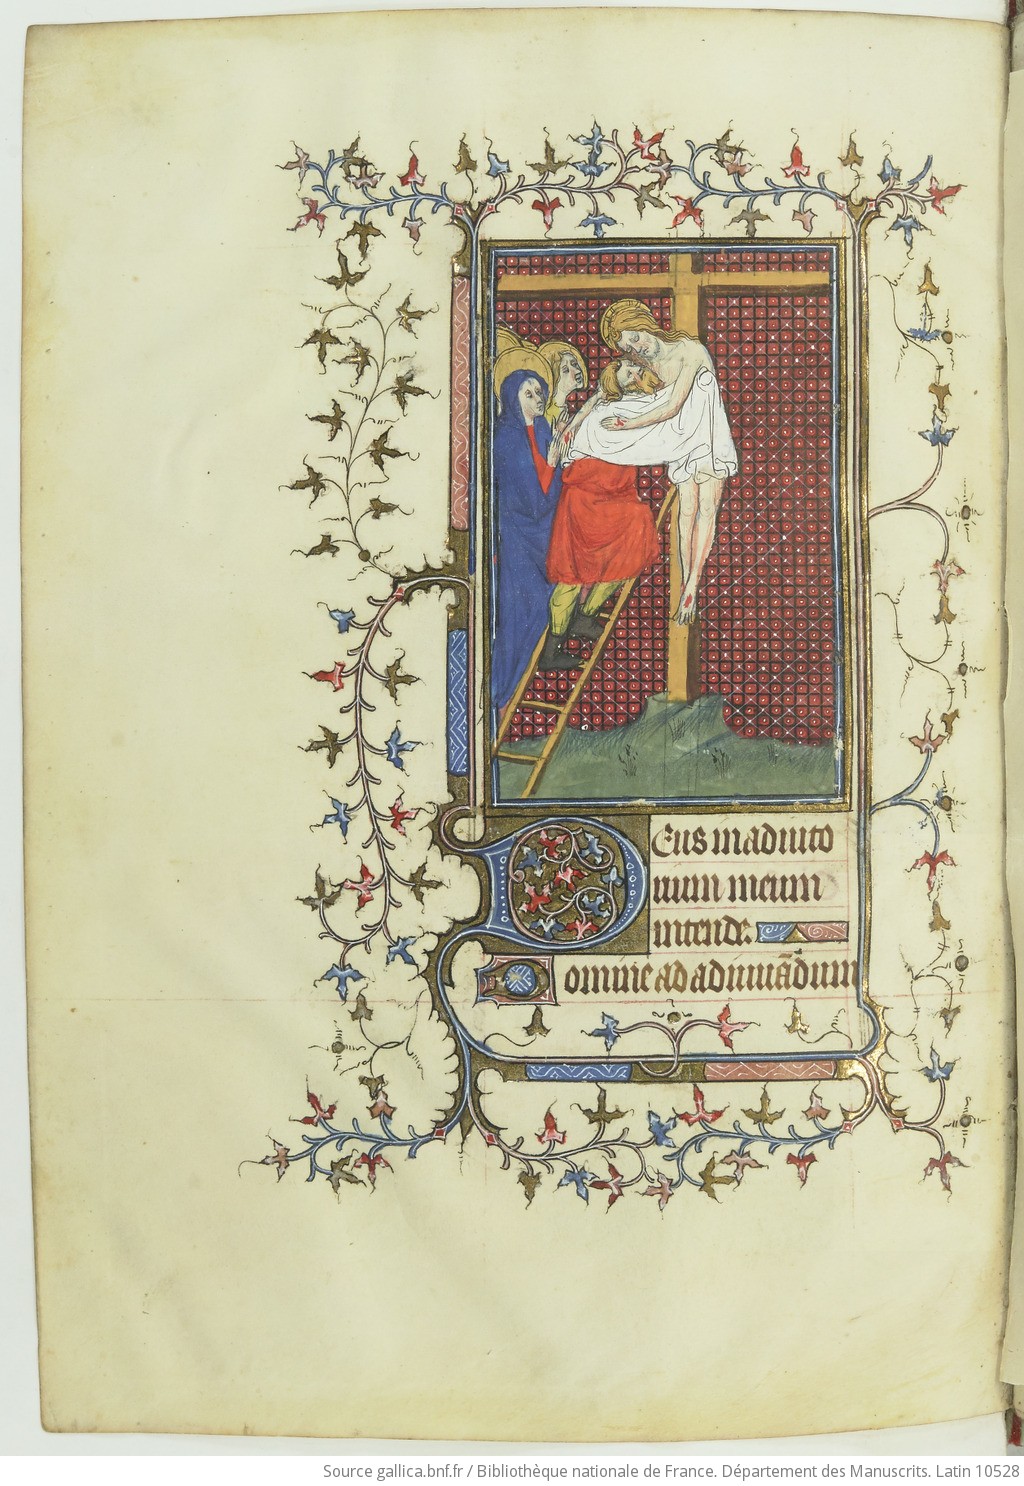 Deus in adiuto
rium meum
intende.
Domine ad adiuuādum
Source gallica.bnf.fr / Bibliothèque nationale de France. Département des Manuscrits. Latin 10528